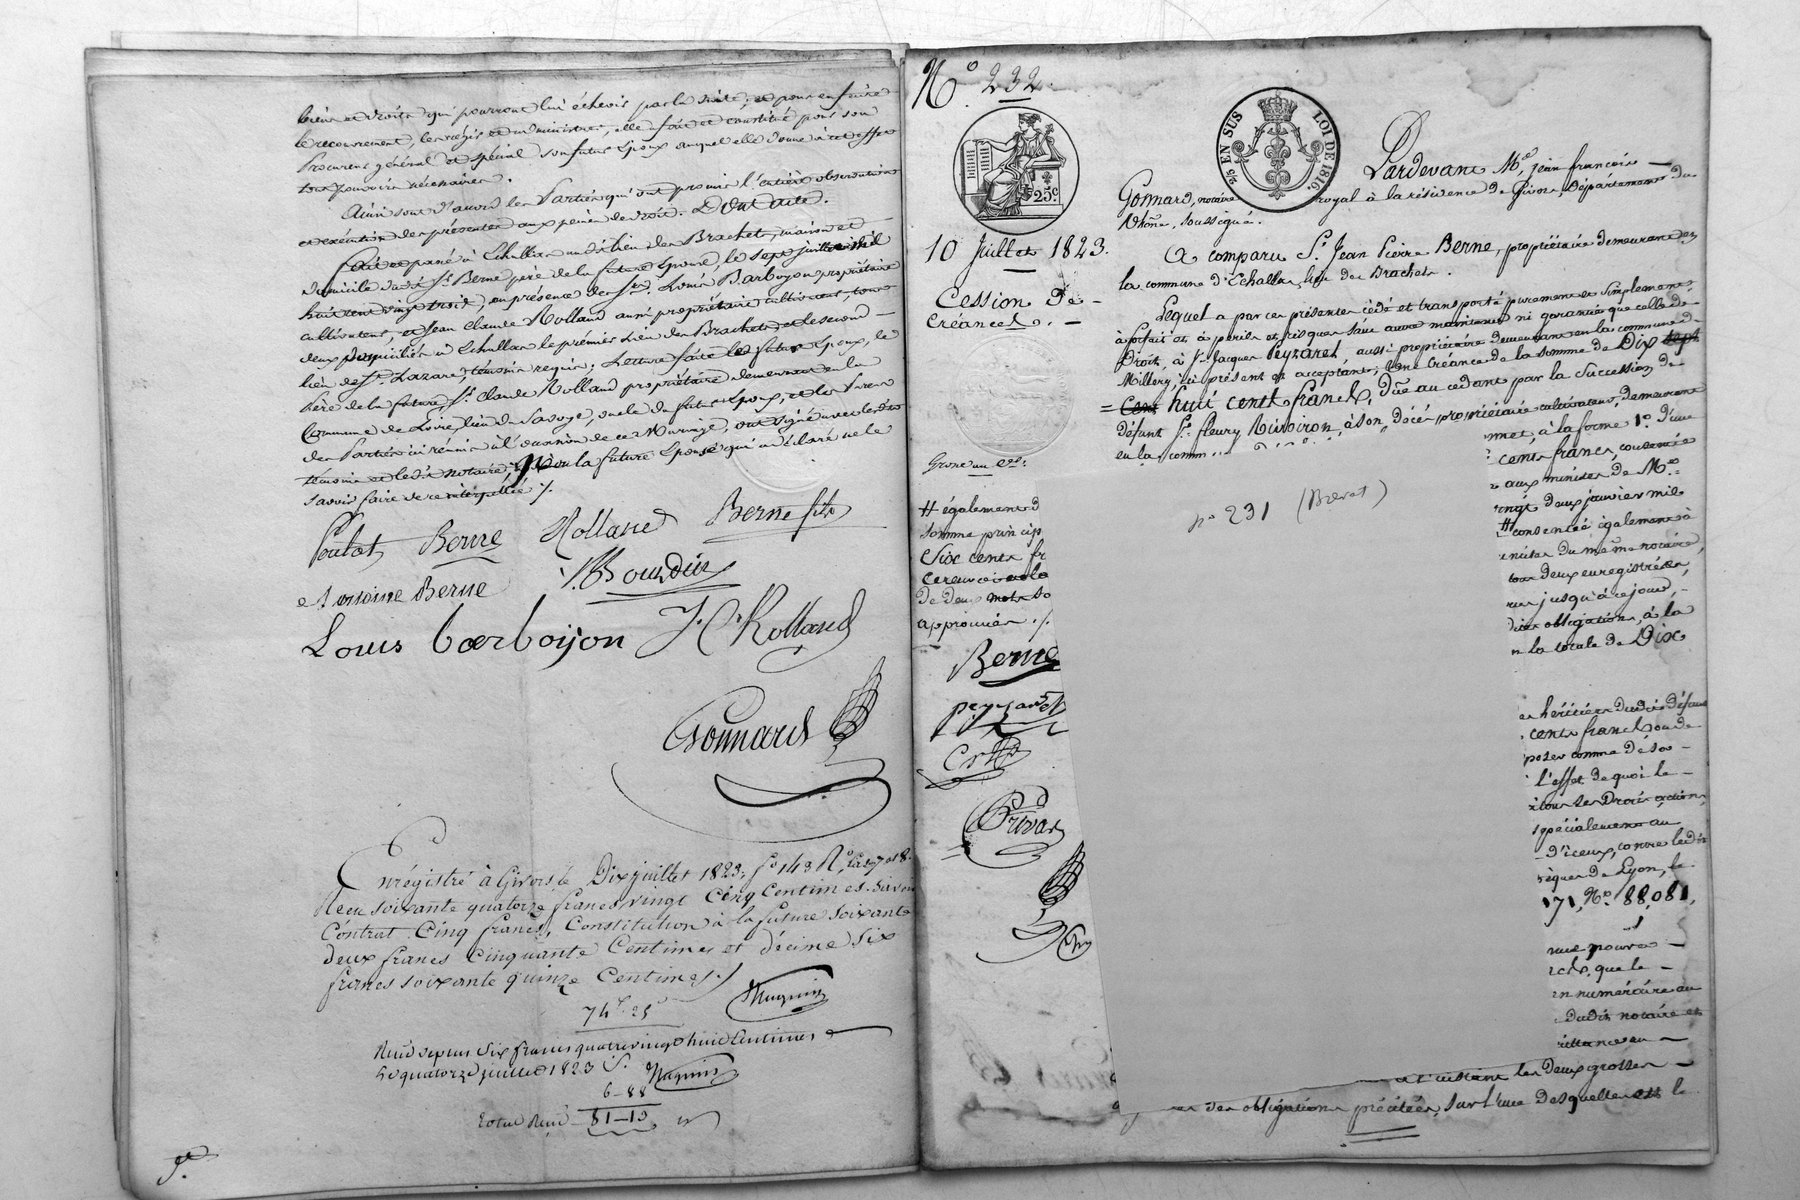 biens et droits qui pourront lui échevir par la suite, et pour en faire
le recouvrement, les régir et administrer, elle fait et constitue pour son
Procureur général et spécial son futur Epoux auquel elle donne à cet effet
tous pouvoirs nécessaires.
Ainsi sont d'accord les Parties qui ont promis l'entière observation
et exécution des présentes aux peines de droit. Dont acte.
Fait et passé à Echallas au dit lieu des Brachet, maison et
domicile dudit Sr. Berne père de la future Epouse, le sept juillet mil
huit cent vingt trois, en présence des Srs. Louis Barboyon propriétaire
cultivateur, et Jean Claude Rolland aussi propriétaire cultivateur, tous
deux domiciliés à Echallas le premier lieu des Brachets, et le second
lieu de St. Lazare, témoins requis. Lecture faite les futurs Epoux, le
Père de la future, Sr. Claude Rolland propriétaire demeurant en la
Commune de Loire, lieu de Savoye, oncle du futur Epoux, et les Parens
des Parties ici réunis à l'occasion de ce Mariage, ont signé avec les dits
témoins et ledit notaire, non la future Epouse qui a déclaré ne le
savoir faire de ce interpellée ./.
Poulat Berne Rolland Berne fils
Antoine Berne Bourdin
Louis barboyon J. C. Rolland
Gonnard
Enrégistré à Givors le Dix juillet 1823, fo 143 Ro, Cases 7 et 8.
Reçu soixante quatorze francs vingt cinq Centimes. Savoir
Contrat Cinq francs, Constitution à la future Soixante
deux francs cinquante Centimes et décime Six
francs soixante quinze Centimes ./
74f. 25c
Magnin
Reçu depuis six francs quatre vingt huit Centimes
le quatorze juillet 1823 ./.
Magnin
6-88
Total Reçu 81-13
No. 232.
25c.
25 EN SUS
LOI DE 1816
10 Juillet 1823.
Cession de
Créances.
Grosse au
# également d
somme princip
Six cents fr
de deux mots so
approuvés ./.
Berne
peyzaret
Privat
Pardevant Me. jean françois
Gonnard, notaire royal à la résidence de Givors, Département du
Rhône, soussigné.
A comparu Sr. Jean Pierre Berne, propriétaire demeurant en
la commune d'Echallas, lieu des Brachets.
Lequel a par ces présentes cédé et transporté purement et simplement,
à forfait et à périls et risques sans autre maintenue ni garantie que celle de
Droit, à Sr. Jacques Peyzaret, aussi propriétaire demeurant en la commune de
Millery, ici présent et acceptant; Une Créance de la somme de Dix sept
= Cent huit cents francs, Due au cedant par la Succession de
Défunt Sr. fleury Rivoiron, à son décé propriétaire cultivateur, demeurant
en la comm
no 231 (Brevet)
met, à la forme 1o. d'une
cents francs, consentie
aux minutes de Me.
vingt deux janvier mil
# consentie également à
minutes du même notaire,
tous deux enregistrées,
rus jusqu'à ce jour,
dites obligations, à la
n la totale de Dix
es héritiers dudit défunt
cents francs ou de
poser comme de so-
l'effet de quoi le
à tous ses Droits actions,
spécialement au
d'iceux, contre ledit
thèques de Lyon, le
171, No. 88,081,
que le
en numéraire au
Dudit notaire et
ittance au
à l'instant les deux grosses
des obligations précitées, sur l'une desquelles est le